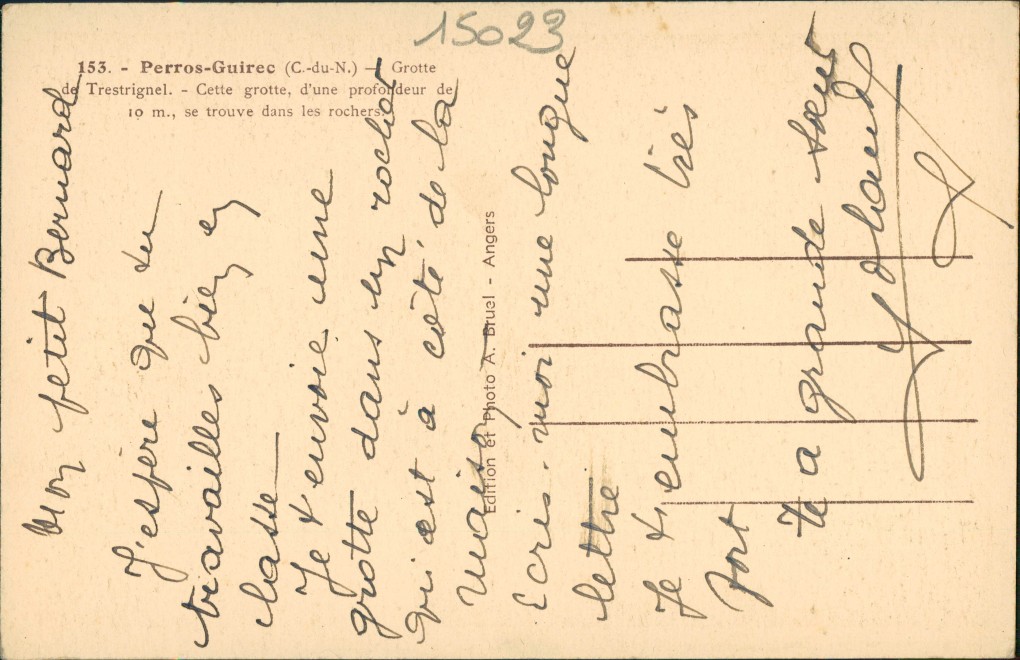 15023
153. - Perros-Guirec (C.-du-N.) - Grotte
de Trestrignel. - Cette grotte, d'une profondeur de
10 m., se trouve dans les rochers.
Edition et Photo A. Bruel - Angers
Mon petit Bernard
J'espère que tu
travailles bien en
classe
Je t'envoie une
grotte dans un rocher
qui est à côté de la
maison
Ecris-moi une longue
lettre
Je t'embrasse très
fort
Ta grande sœur
Yolande